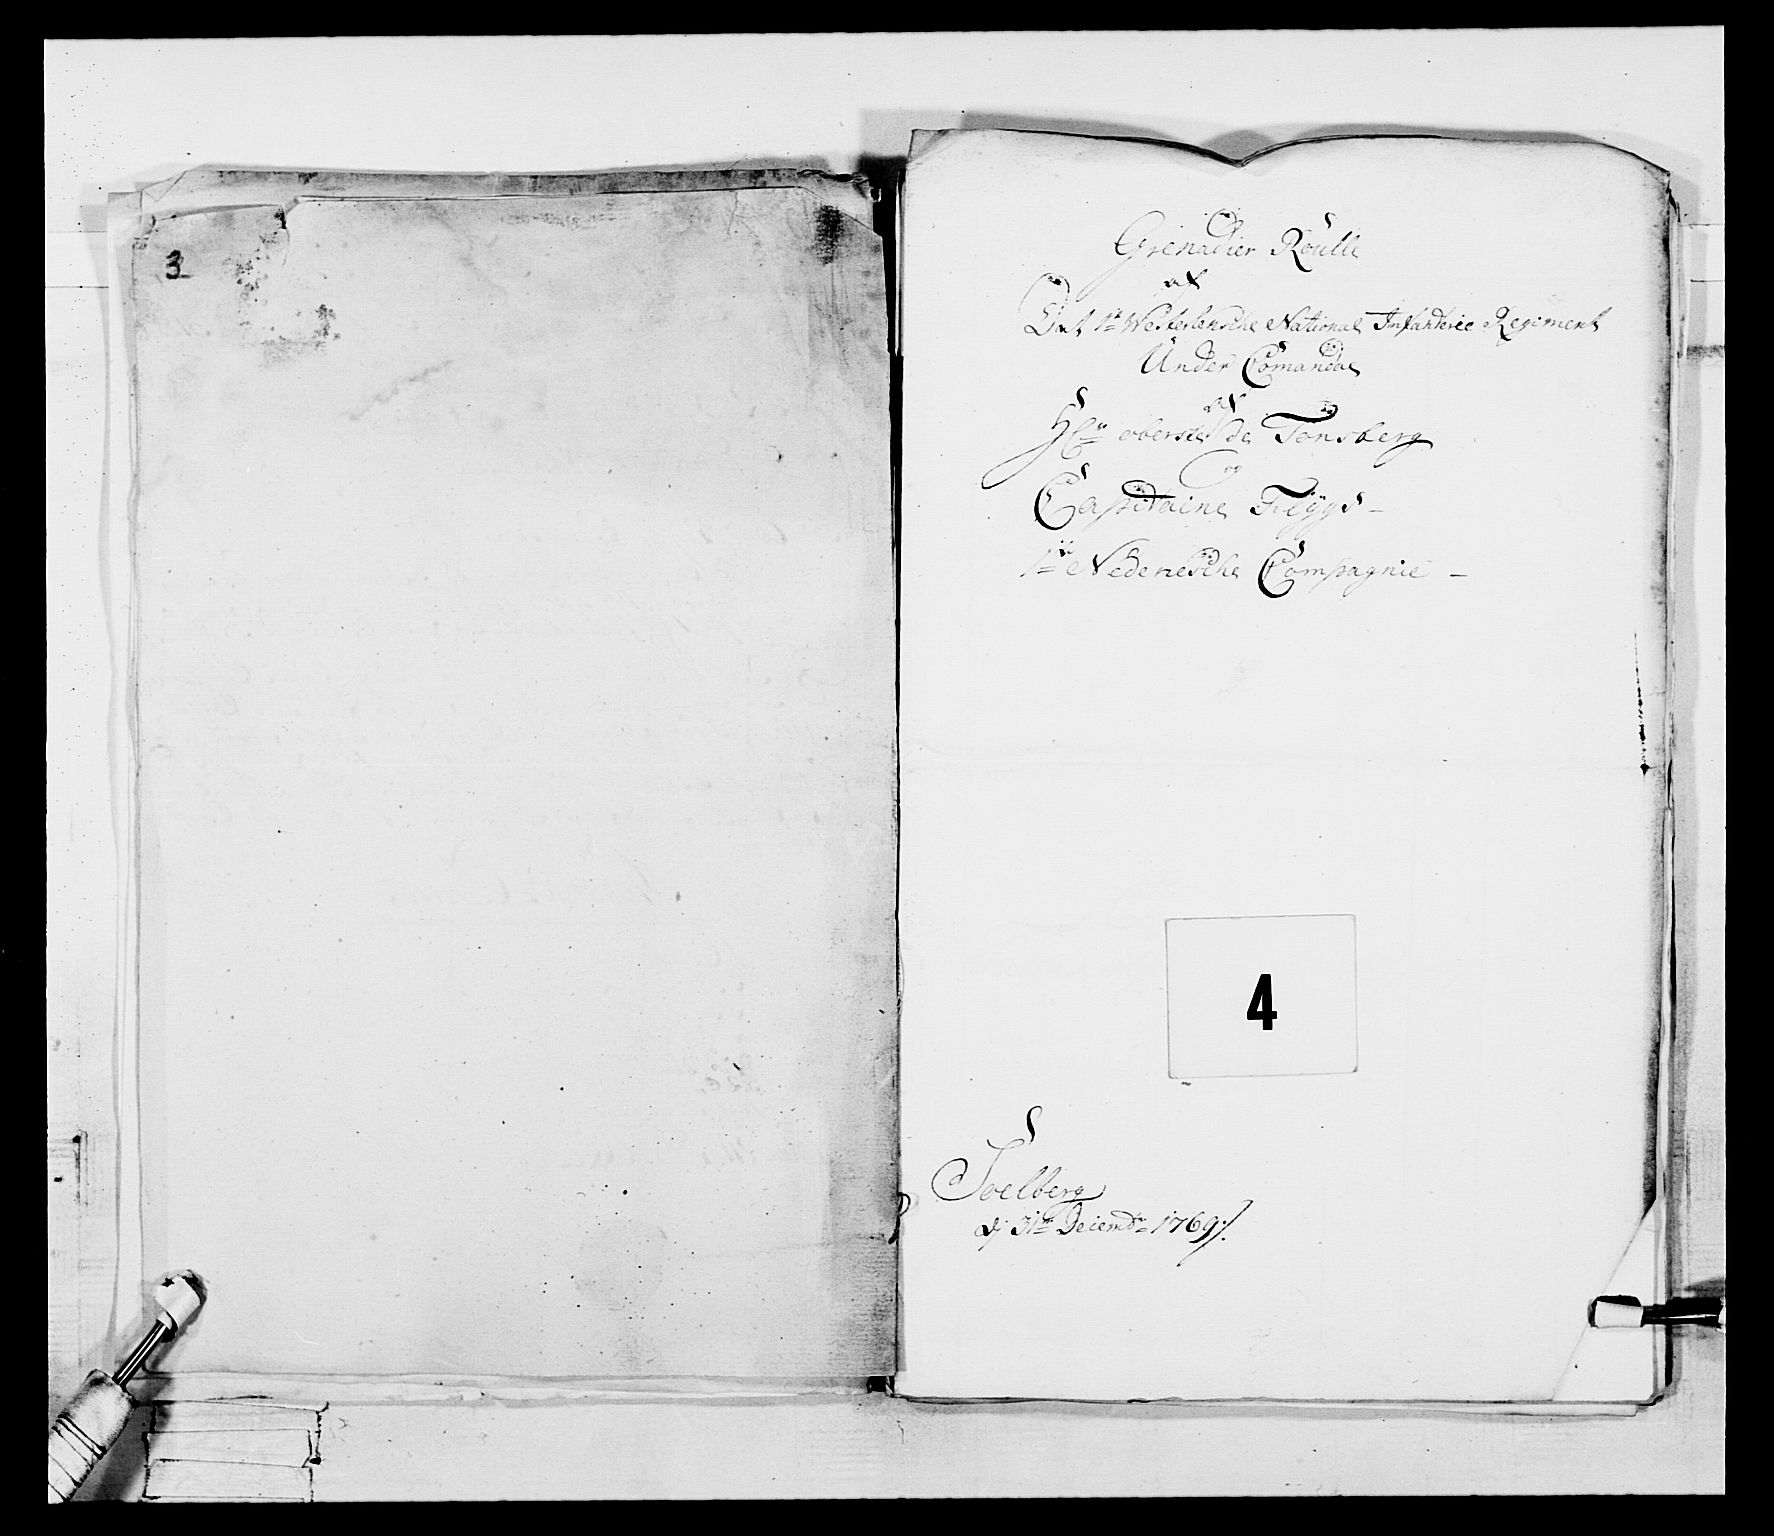 3
Grenadier Roulle
af
Det 1te Westerlensche National Infanterie Regiment
Under Comando
af
Hr. oberste de Tonsberg
og
Capitaine Flygs -
1te Nedenesche Compagnie -
4
Soelberg
dj 31te Decembr 1769 /.